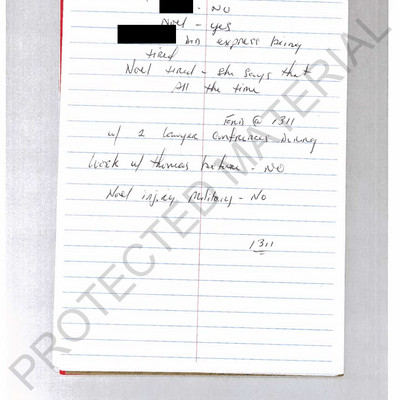 - NO
Noel - yes
express being
tired
Noel tired - she says that
All the time
END @ 1311
w/ 2 lawyer conferences during
week w/ thomas - NO
Noel injury military - No
1311
PROTECTED MATERIAL